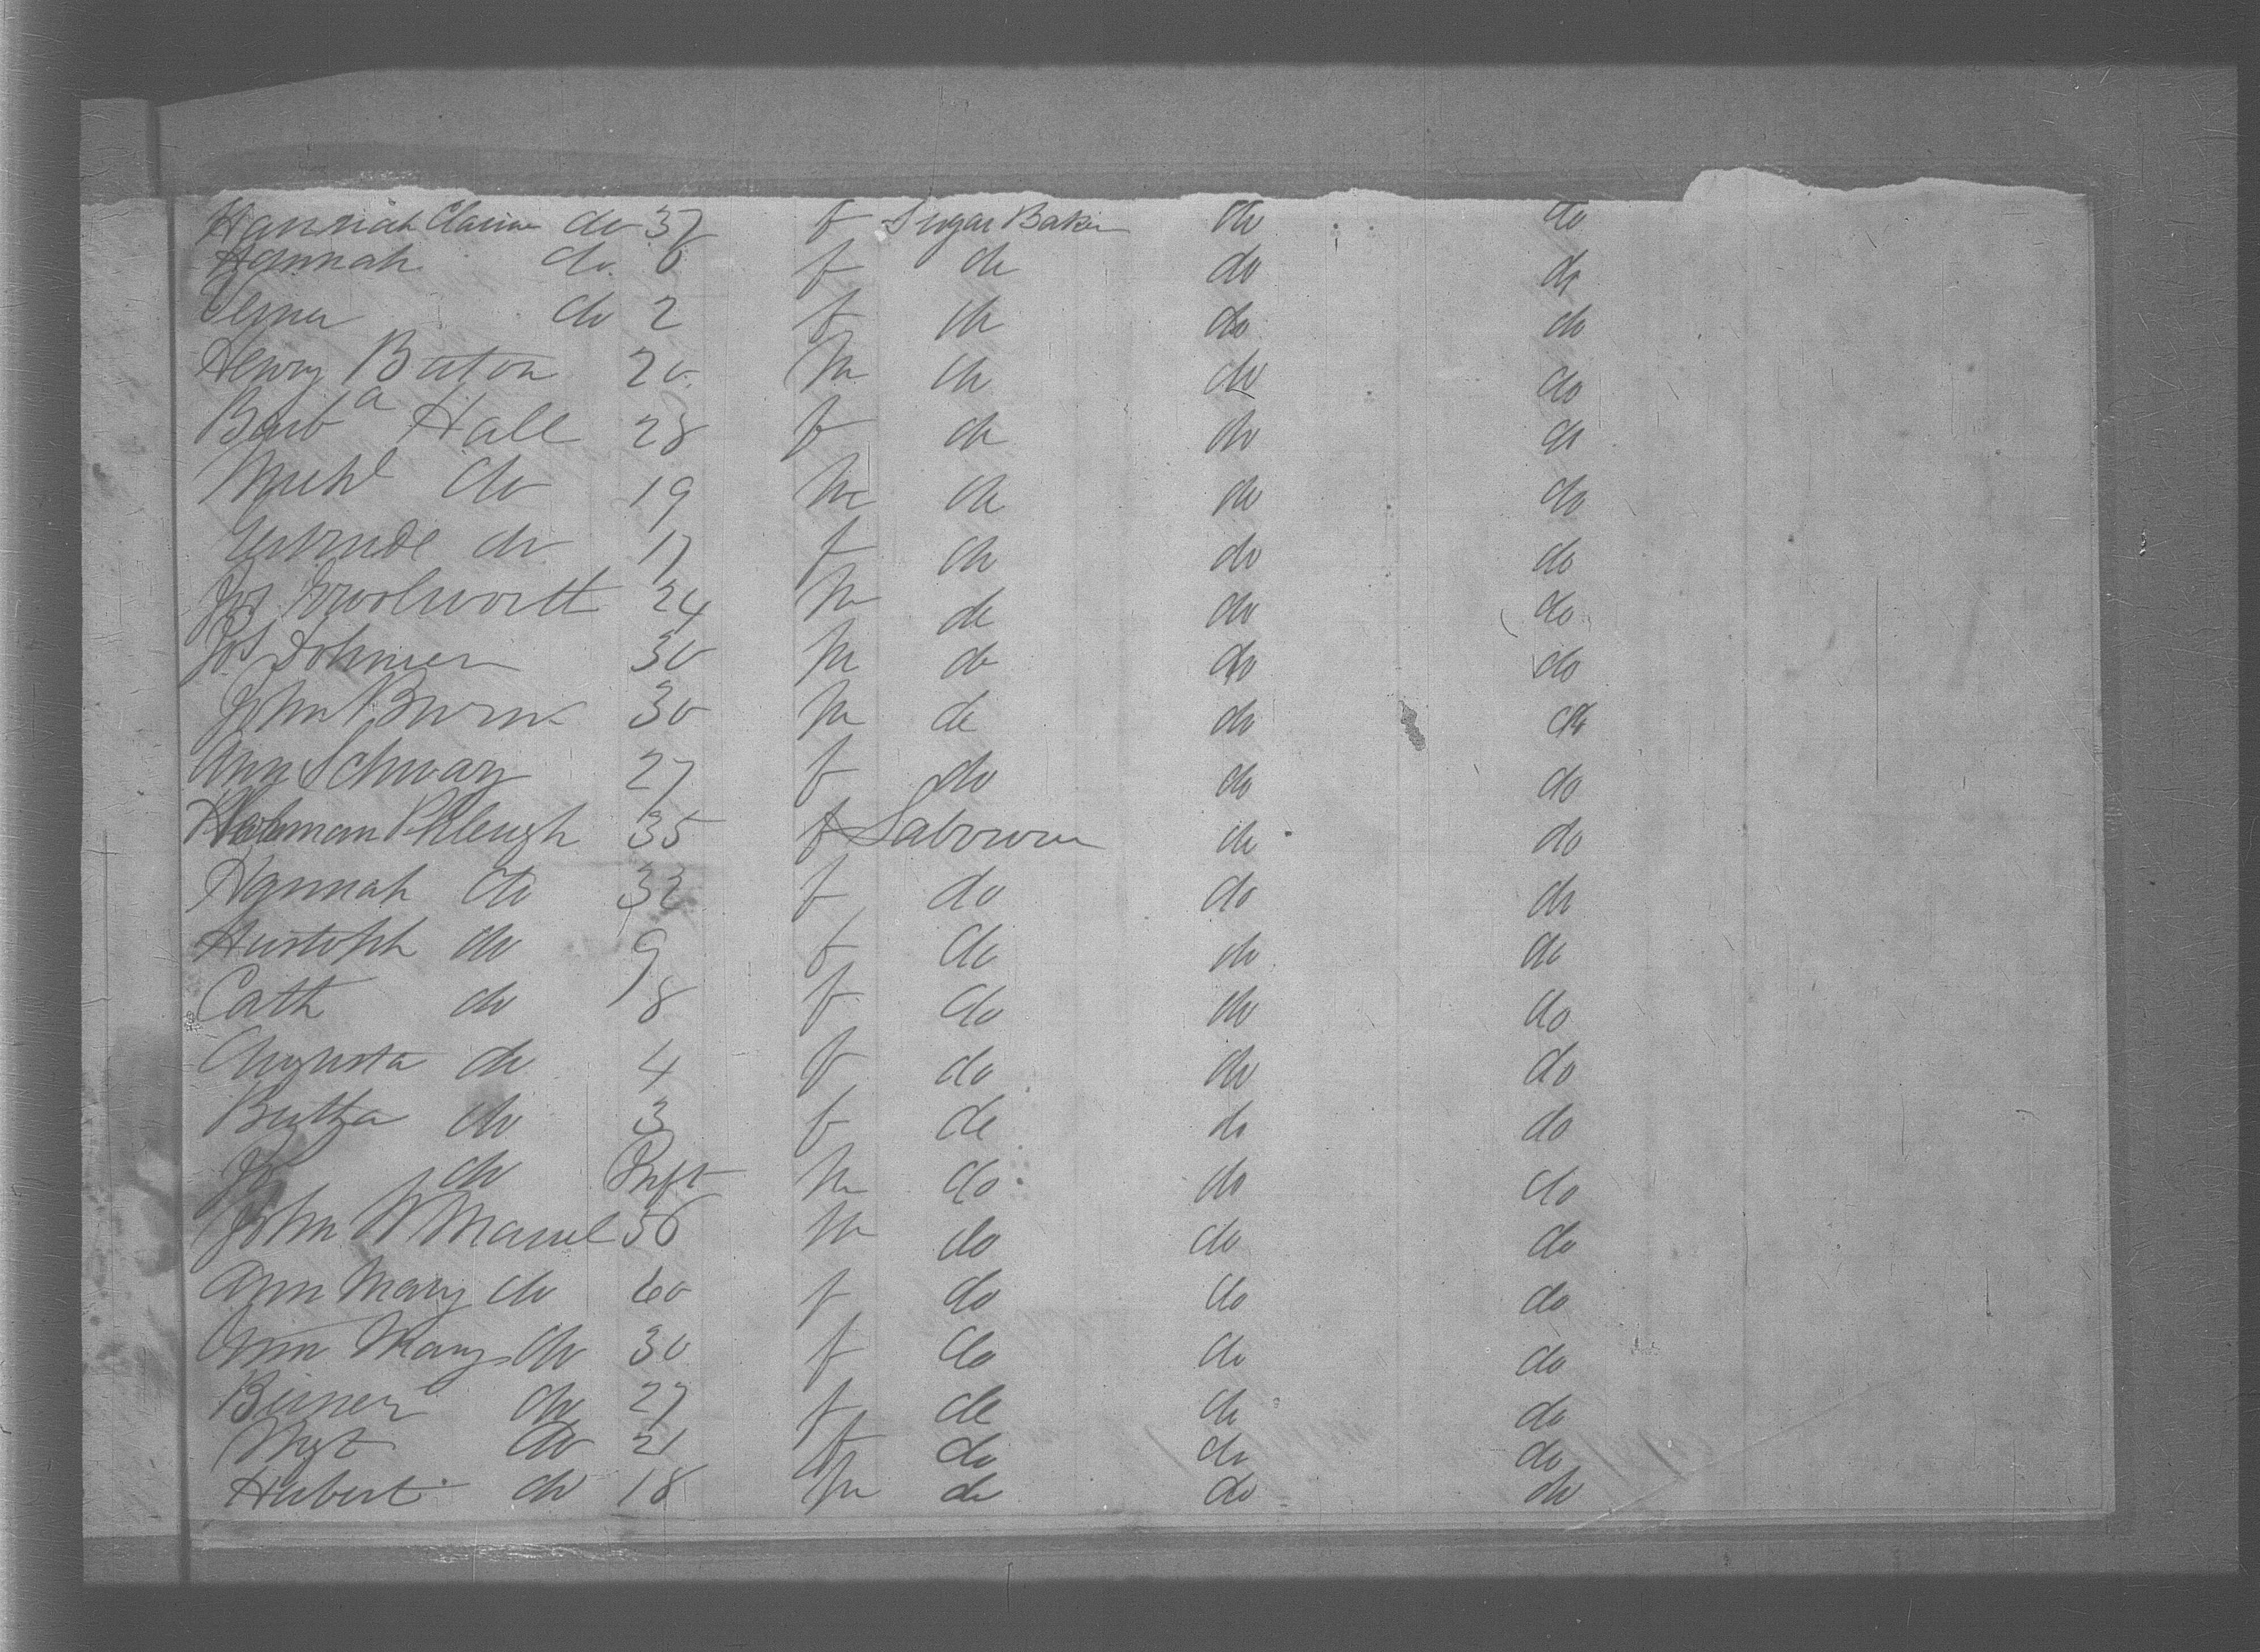 Hannah Clarine do 37 f Sugar Baker do do
Hannah do 6 f do do do
Verner do 2 f do do do
Henry Buton 20 M do do do
Barba Hall 28 f do do do
Michl do 19 M do do do
Gertrude do 17 f do do do
Jos Woolwortt 24 M do do do
Jos Dohmen 30 M do do do
John 30 M do do do
Ann Schwarz 27 f do do do
35 f do do
Hannah do 33 f do do do
do 9 f do do do
Cath do 8 f do do do
Augusta do 4 f do do do
Butha do 3 f do do do
Jo do Inft M do do do
John W 56 M do do do
Ann Mary do 60 f do do do
Ann Mary do 30 f do do do
do 27 f do do do
Mgt do 21 f do do do
Hubert do 18 M do do do